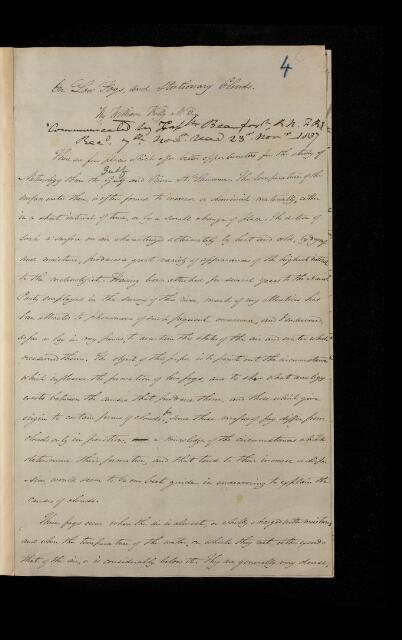 4
On Low Fogs, and Stationary Clouds.
By William Kelly M.D.
Communicated by Captn Beaufort, R.N. F.R.S
Recd. 7th Novr. Read 23d. Novr. 1837
There are few places which offer better opportunities for the study of
Meteorology than the Gulf and River St. Lawrence. The temperature of the
surface water there, is often found to increase or diminish materially, either
in a short interval of time, or by a small change of place. The action of
such a surface on air characterized alternately by heat and cold, by dryness
and moisture, produces a great variety of appearances of the highest interest
to the meteorologist. Having been attached for several years to the Naval
Party employed in the survey of this river, much of my attention has
been attracted to phenomena of such frequent occurrence, and I endeavored,
as far as lay in my power, to ascertain the state of the air and water which
occasioned them. The object of this paper is to point out the circumstances
which influence the formation of low fogs, and to shew what analogy
exists between the causes that produce them, and those which give
origin to certain forms of clouds; for, since these masses of fog differ from
clouds only in position, a knowledge of the circumstances which
determine their formation, and that tend to their increase or disper-
sion, would seem to be our best guide in endeavouring to explain the
causes of clouds.
These fogs occur when the air is almost, or wholly charged with moisture,
and when the temperature of the water, on which they rest, either exceeds
that of the air, or is considerably below it. They are generally very dense,